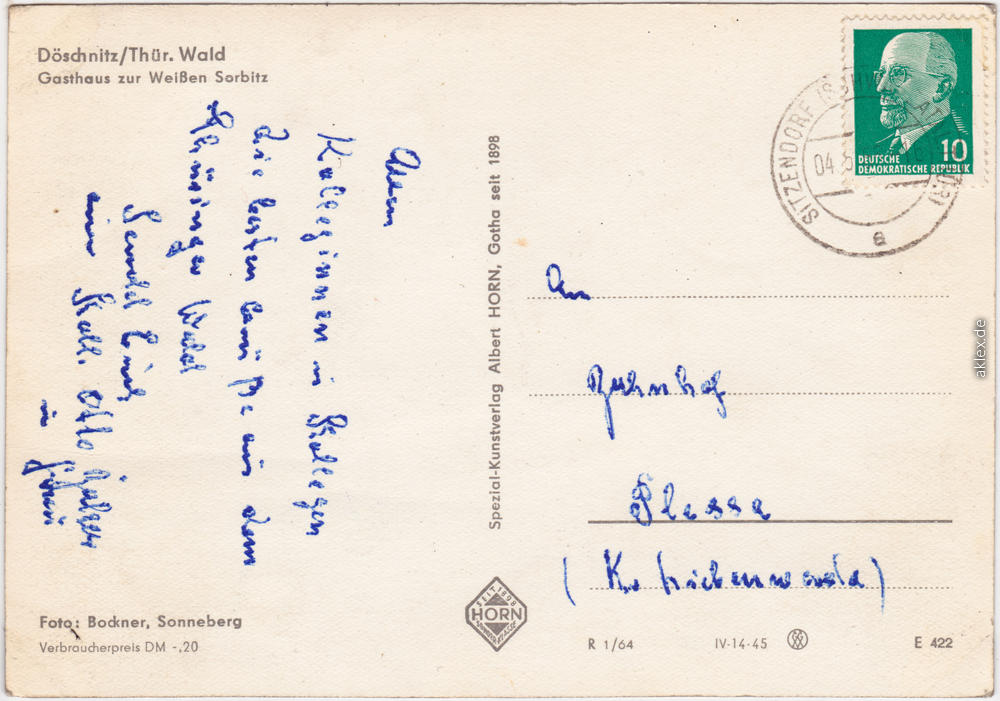 Döschnitz/Thür. Wald
Gasthaus zur Weißen Sorbitz
Allen
Kolleginnen u Kollegen
die besten Grüße aus dem
Thüringer Wald
Sendet Euch
Euer Koll. Otto
u Frau
Foto: Bockner, Sonneberg
Verbraucherpreis DM -,20
Spezial-Kunstverlag Albert HORN, Gotha seit 1898
SEIT 1898
HORN
DEUTSCHE
DEMOKRATISCHE REPUBLIK
10
SITZENDORF (SCHWARZATAL)
04.5
a
An
Bahnhof
Plessa
(Kr Liebenwerda)
R 1/64
IV-14-45
E 422
aklex.de